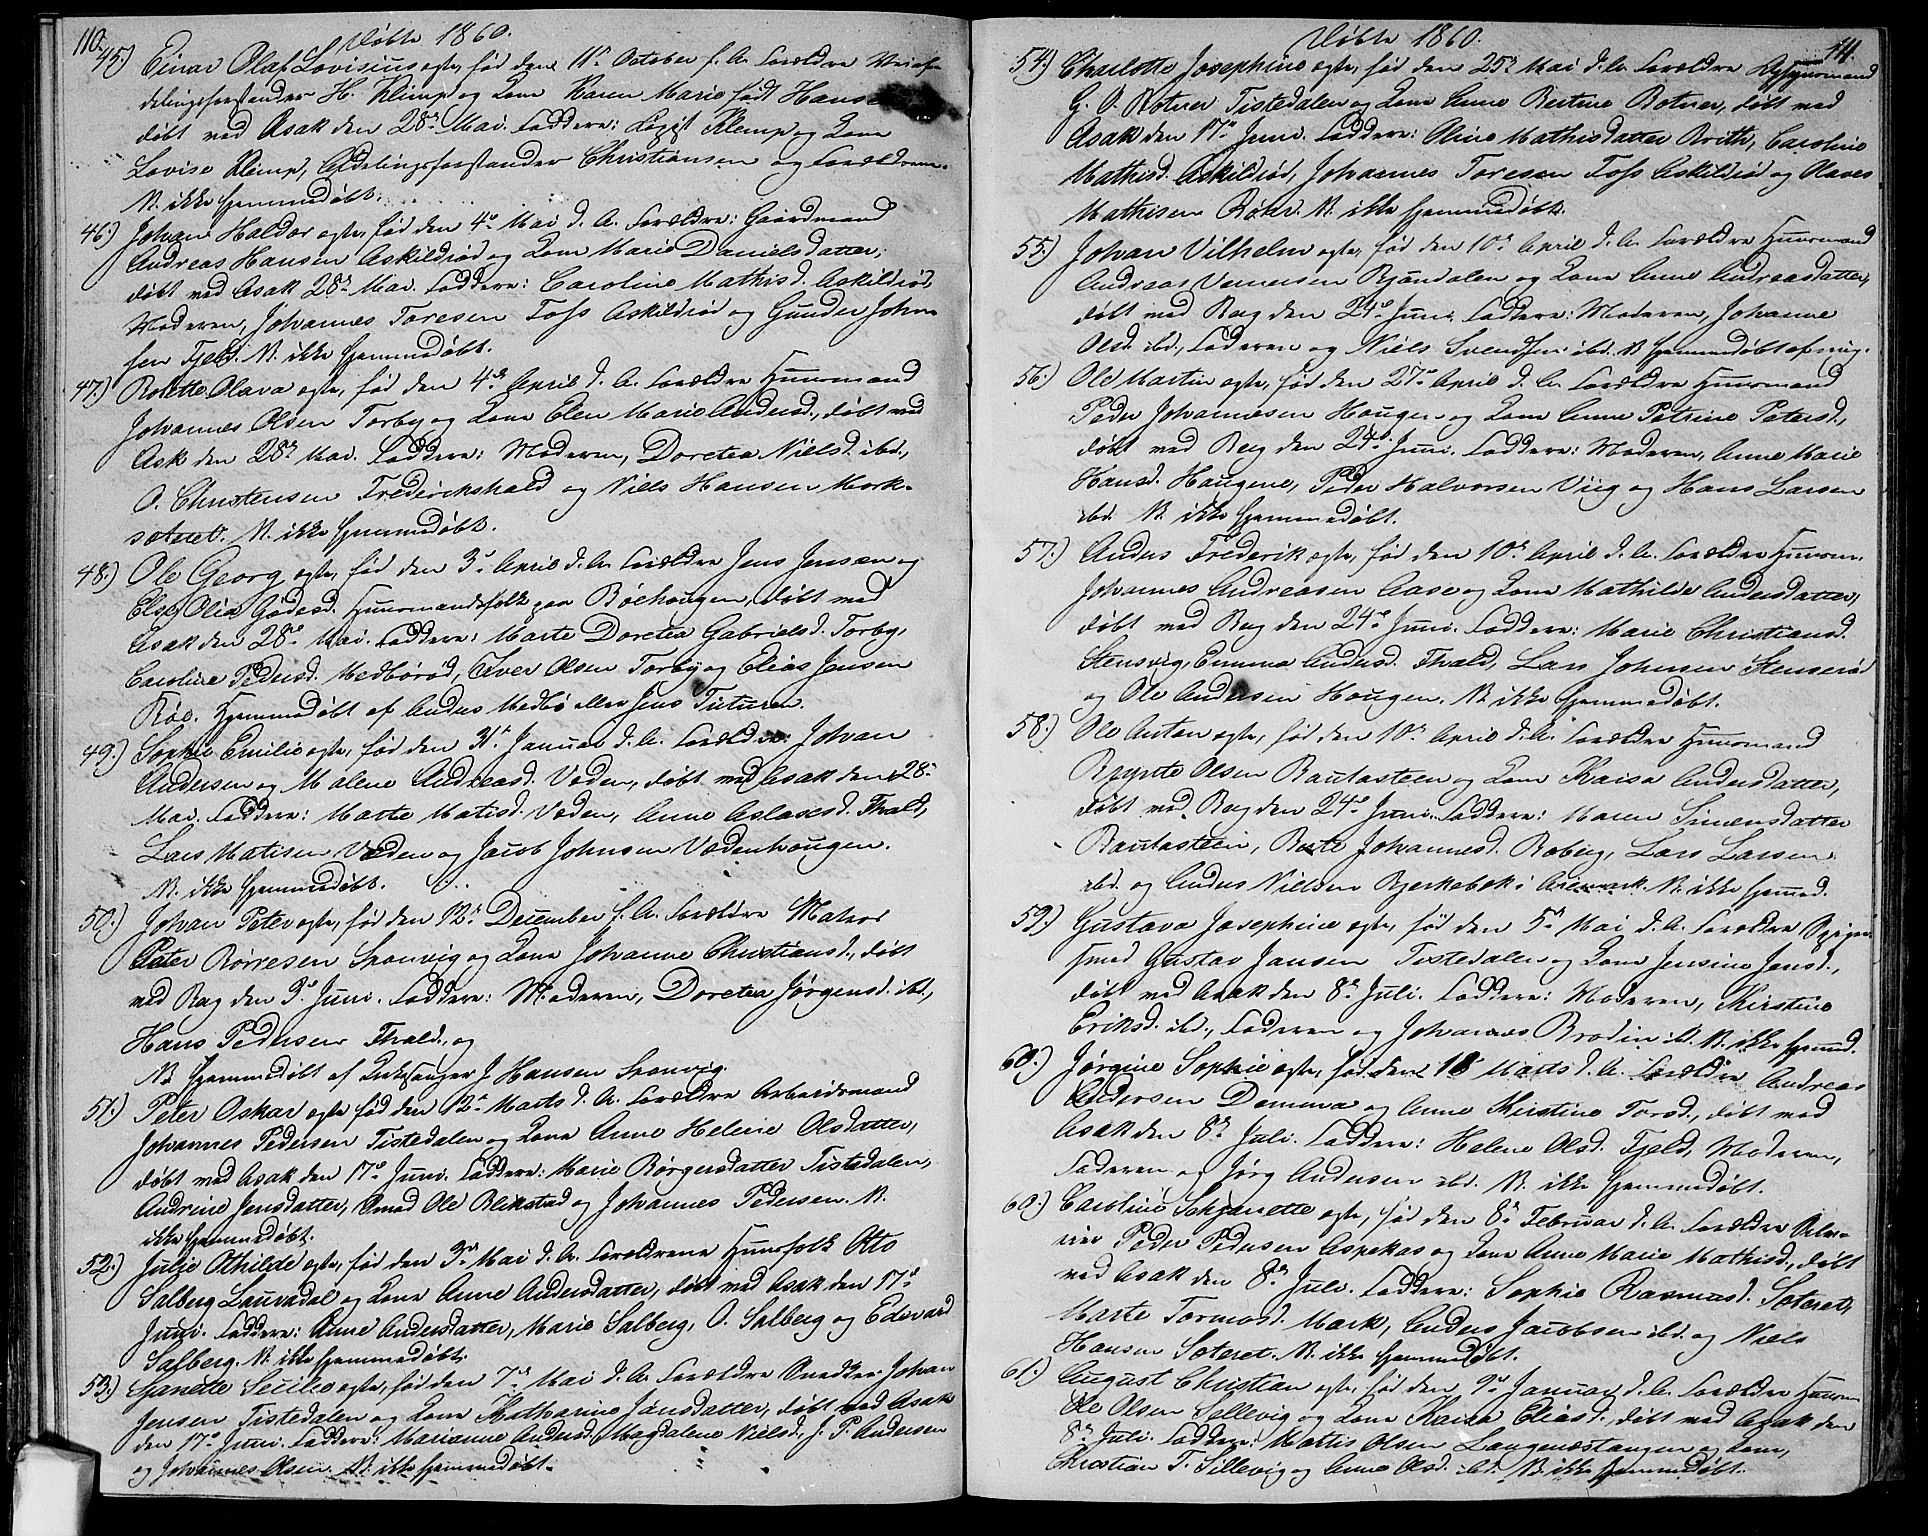 110.
Døbte 1860.
45.) Einar Olaf Lovisius egte, fød den 11te October f. A. Forældre
delingsforstander H. Klemp og Kone Karen Marie født Hansen
døbt ved Asak den 28de Mai. Faddere: Klemp og Kone
Lovise Klemp, Afdelingsforstander Christiansen og Forældrene.
N. ikke hjemmedøbt.
46.) Johan Haldor egte, fød den 4de Mai d. A. Forældre: Gaardmand
Andreas Hansen Askildrød og Kone Marie Danielsdatter,
døbt ved Asak 28de Mai. Faddere: Caroline Mathisd. Askildrød
Moderen, Johannes Toresen Foss Askildrød og Gunder John-
sen Fjeld. N. ikke hjemmedøbt.
47.) Rosette Olava egte, fød den 4de April d. A. Forældre Huusmand
Johannes Olsen Torby og Kone Elen Marie Andersd., døbt ved
Ask den 28de Mai. Faddere: Moderen, Dorctea Nielsd. ibd.,
O. Christensen Frederikshald og Niels Hansen Mork-
sæteret. N. ikke hjemmedøbt.
48.) Ole Georg egte, fød den 3de April d. A. Forældre Jens Jensen og
Else Olia Gødesd. Huusmandsfolk paa Røehougen, døbt ved
Asak den 28de Mai. Faddere: Marte Dorctea Gabrielsd. Torby,
Caroline Pedersd. Medbørød, Iver Olsen Torby og Elias Jensen
Røe. Hjemmedøbt af Anders Medbø eller Jens
49.) Sophie Emilie egte, fød den 31te Januar d. A. Forældre Johan
Andersen og Malene Andreasd. Veden, døbt ved Asak den 28de
Mai. Faddere: Marte Matisd. Veden, Anne Aslaxsd. Fhald,
Lars Matisen Veden og Jacob Johnsen Vedenhougen.
N. ikke hjemmedøbt.
50.) Johan Peter egte, fød den 12te December f. A. Forældre Matros
Peter Børresen Sponvig og Kone Johanne Christiansd., døbt
ved Bag den 3de Juni. Faddere: Moderen, Dorctea Jørgensd. ibd.,
Hans Pedersen Fhald, og
N. hjemmedøbt af Kirkesanger J. Hansen Sponvig.
51.) Peter Oskar egte fød den 12te Marts d. A. Forældre Arbeidsmand
Johannes Pedersen Tistedalen og Kone Anne Helene Olsdatter,
døbt ved Asak den 17de Juni. Faddere: Marie Børgersdatter Tistedalen,
Andrine Jensdatter, Smed Ole Blikstad og Johannes Pedersen. N.
ikke hjemmedøbt.
52.) Julje Othilde egte, fød den 3de Mai d. A. Forældrene Huusfolk Otto
Salberg Lauvadal og Kone Anne Andersdatter, døbt ved Asak den 17de
Juni. Faddere: Anne Andersdatter, Marie Salberg, O. Salberg og Edevard
Salberg. N. ikke hjemmedøbt.
53.) Hanette Secilie egte, fød den 7de Mai d. A. Forældre Snedker Johan
Jensen Tistedalen og Kone Katharine Jansdatter, døbt ved Asak
den 17de Juni. Faddere: Marianne Andersd. Magdalene Nielsd., J. P. Andersen
og Johannes Olsen. N. ikke hjemmedøbt.
Døbte 1860.
111.
54.) Charlotte Josephine egte, fød den 25de Mai d. A. Forældre
G. O. Botner Tistedalen og Kone Anne Bertine Botner, døbt ved
Asak den 17de Juni. Faddere: Oline Mathisdatter Brith, Caroline
Mathisd. Askildrød, Johannes Toresen Foss Askildrød og Olaves
Mathisen Røhr. N. ikke hjemmedøbt.
55.) Johan Vilhelm egte, fød den 10de April d. A. Forældre Huusmand
Andreas Vernersen Bjøndalen og Kone Anne Andreasdatter,
døbt ved Bag den 24de Juni. Faddere: Moderen, Johanne
Olsd. ibd., Faderen og Niels Svendsen ibd. N. hjemmedøbt af mig.
56.) Ole Martin egte, fød den 27de April d. A. Forældre Huusmand
Peder Johannesen Hougen og Kone Anne Petrine Petersd.,
døbt ved Bag den 24de Juni. Faddere: Moderen, Anne Marie
Hansd. Hougene, Peder Halvorsen Viig og Hans Larsen
ibd. N. ikke hjemmedøbt.
57.) Anders Frederik egte, fød den 10de April d. A. Forældre Huusm.
Johannes Andreasen Aase og Kone Mathilde Andersdatter,
døbt ved Bag den 24de Juni. Faddere: Marie Christiansd.
Stensvig, Emma Andersd. Fhald, Lars Johnsen Stenserød
og Ole Andersen Hougen. N. ikke hjemmedøbt.
58.) Ole Anton egte, fød den 10de April d. A. Forældre Huusmand
Bernte Olsen Bautasteen og Kone Kaisa Andersdatter,
døbt ved Bag den 24de Juni. Faddere: Maren Simensdatter
Bautasteen, Berte Johannesd. Boberg, Lars Larsen
ibd. og Anders Nielsen Bjerkebek i Aremark. N. ikke hjemmed.
59.) Gustava Josephine egte, fød den 5te Mai d. A. Forældre
smed Gustav Jansen Tistedalen og Kone Jensine Jensd.,
døbt ved Asak den 8de Juli. Faddere: Moderen, Kirstine
Eriksd. ibd., Faderen og Johannes Brodin ib. N. ikke hjemmd.
60.) Jørgine Sophie egte, fød den 18 Marts d. A. Forældre Andreas
Andersen Damma og Anne Kirstine Torsd., døbt ved
Asak den 8de Juli. Faddere: Helene Olsd. Fjeld, Moderen,
Faderen og Jørg Andersen ibd. N. ikke hjemmedøbt.
60.) Caroline Schjanette egte, fød den 8de Februar d. A. Forældre
Peder Pedersen Aspekas og Kone Anne Marie Mathisd., døbt
ved Asak den 8de Juli. Faddere: Sophie Rasmusd. Sæteret,
Marte Tormosd. Mark, Anders Jacobsen ibd. og Niels
Hansen Sæteret. N. ikke hjemmedøbt.
61.) August Christian egte, fød den 9de Januar d. A. Forældre Huusm.
Ole Olsen Sellevig og Kone Kaisa Eliasd., døbt ved Asak den
8de Juli. Faddere: Mattis Olsen Langenæstangen og Kone,
Christian T. Sillevig og Anne Olsd. ibd. N. ikke hjemmedøbt.